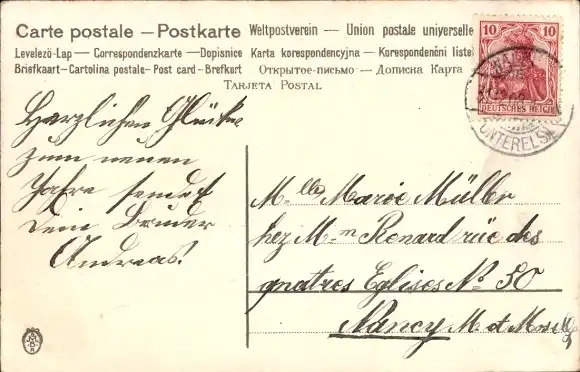 Carte postale — Postkarte Weltpostverein — Union postale universelle
Levelezö-Lap — Correspondenzkarte — Dopisnice Karta korespondencyjna — Korespondenöni listek
Briefkaart - Cartolina postale - Post card - Brefkort Открытое-письмо — Дописна Карта
Tarjeta Postal
10 10
DEUTSCHES REICH
UNTERELS
Herzlichen Glücke
zum neuen
Jahre sendet
Dein Bruder
Andreas!
Mlle Marie Müller
hez Mm Renard rüe des
quatres Eglises No 50
Nancy M et Mosell